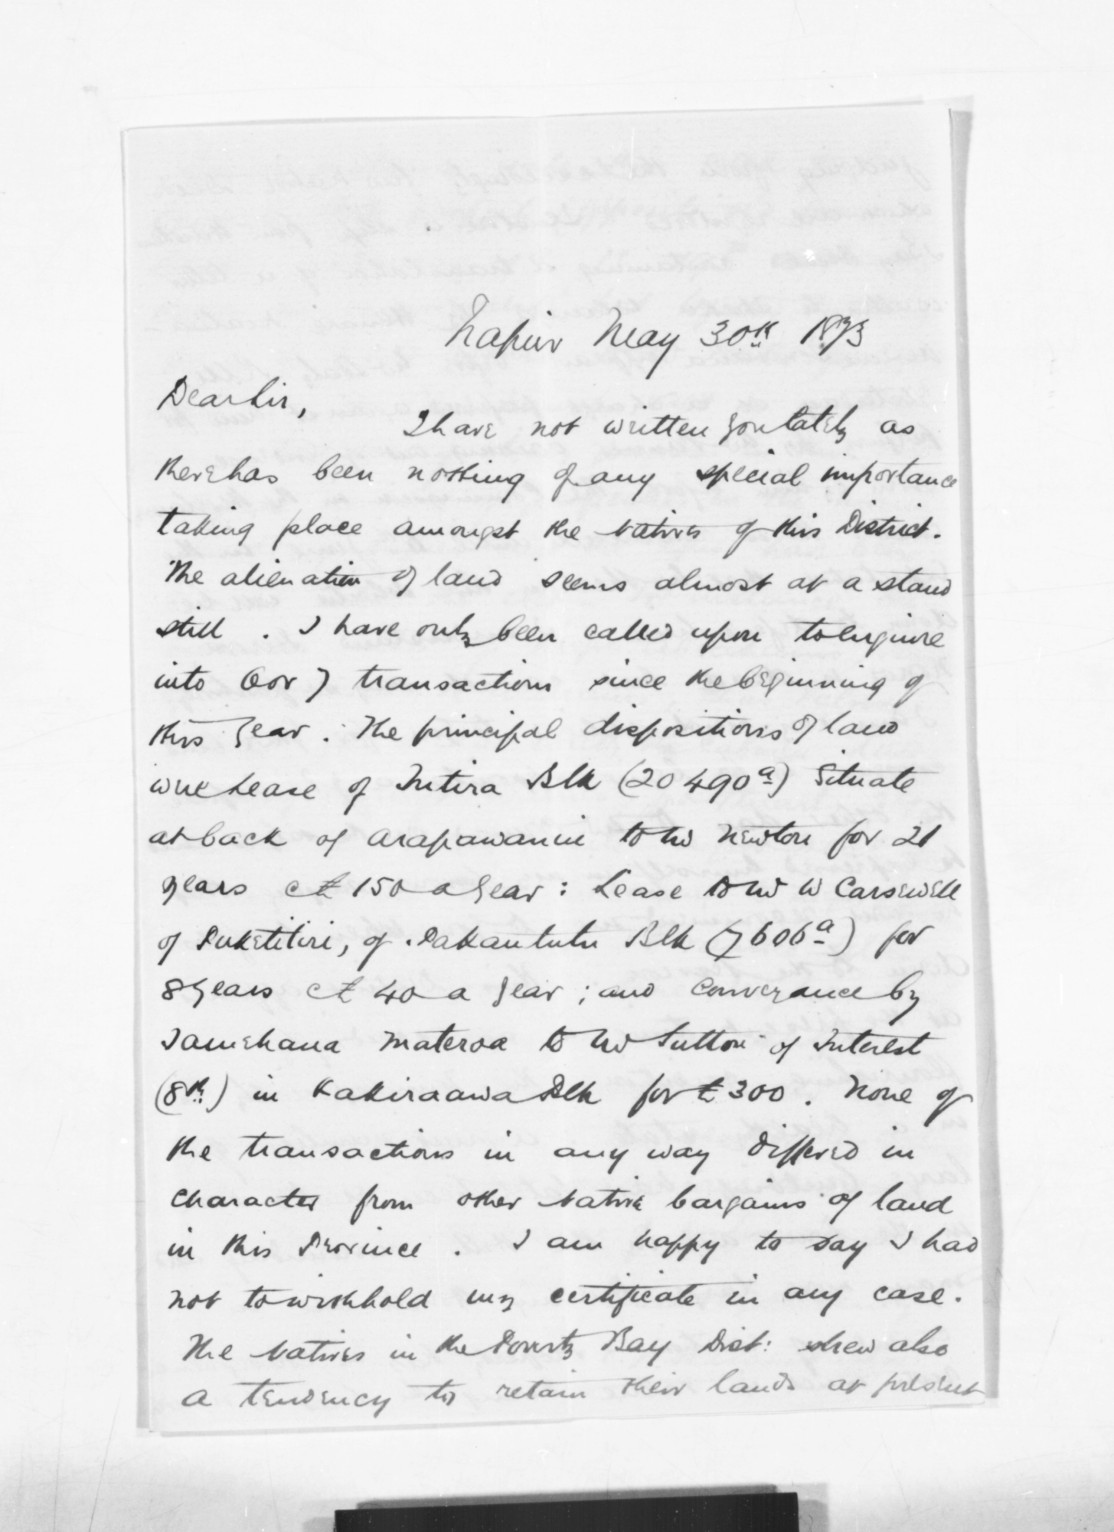 Napier May 30th 1873
Dear Sir,
I have not written you lately as
there has been nothing of any special importance
taking place amongst the Natives of this District.
The alienation of land seems almost at a stand
still. I have only been called upon to enquire
into 6 or 7 transactions since the beginning of
this year. The principal dispositions of land
were Lease of Tutira Blk (20 490a) situate
at back of Arapawanui to Mr Newton for 21
years @ £150 a year: Lease to Mr W Carswell
of Puketitiri, of Pakaututu Blk (7606a) for
8 years @ £40 a year; and conveyance by
Tamehana Materoa to Mr Sutton of Interest
(8th) in Kakiraawa Blk for £300. None of
the transactions in any way differed in
character from other Native bargains of land
in this Province. I am happy to say I had
not to withhold my certificate in any case.
The Natives in the Poverty Bay Dist: shew also
a tendency to retain their lands at present